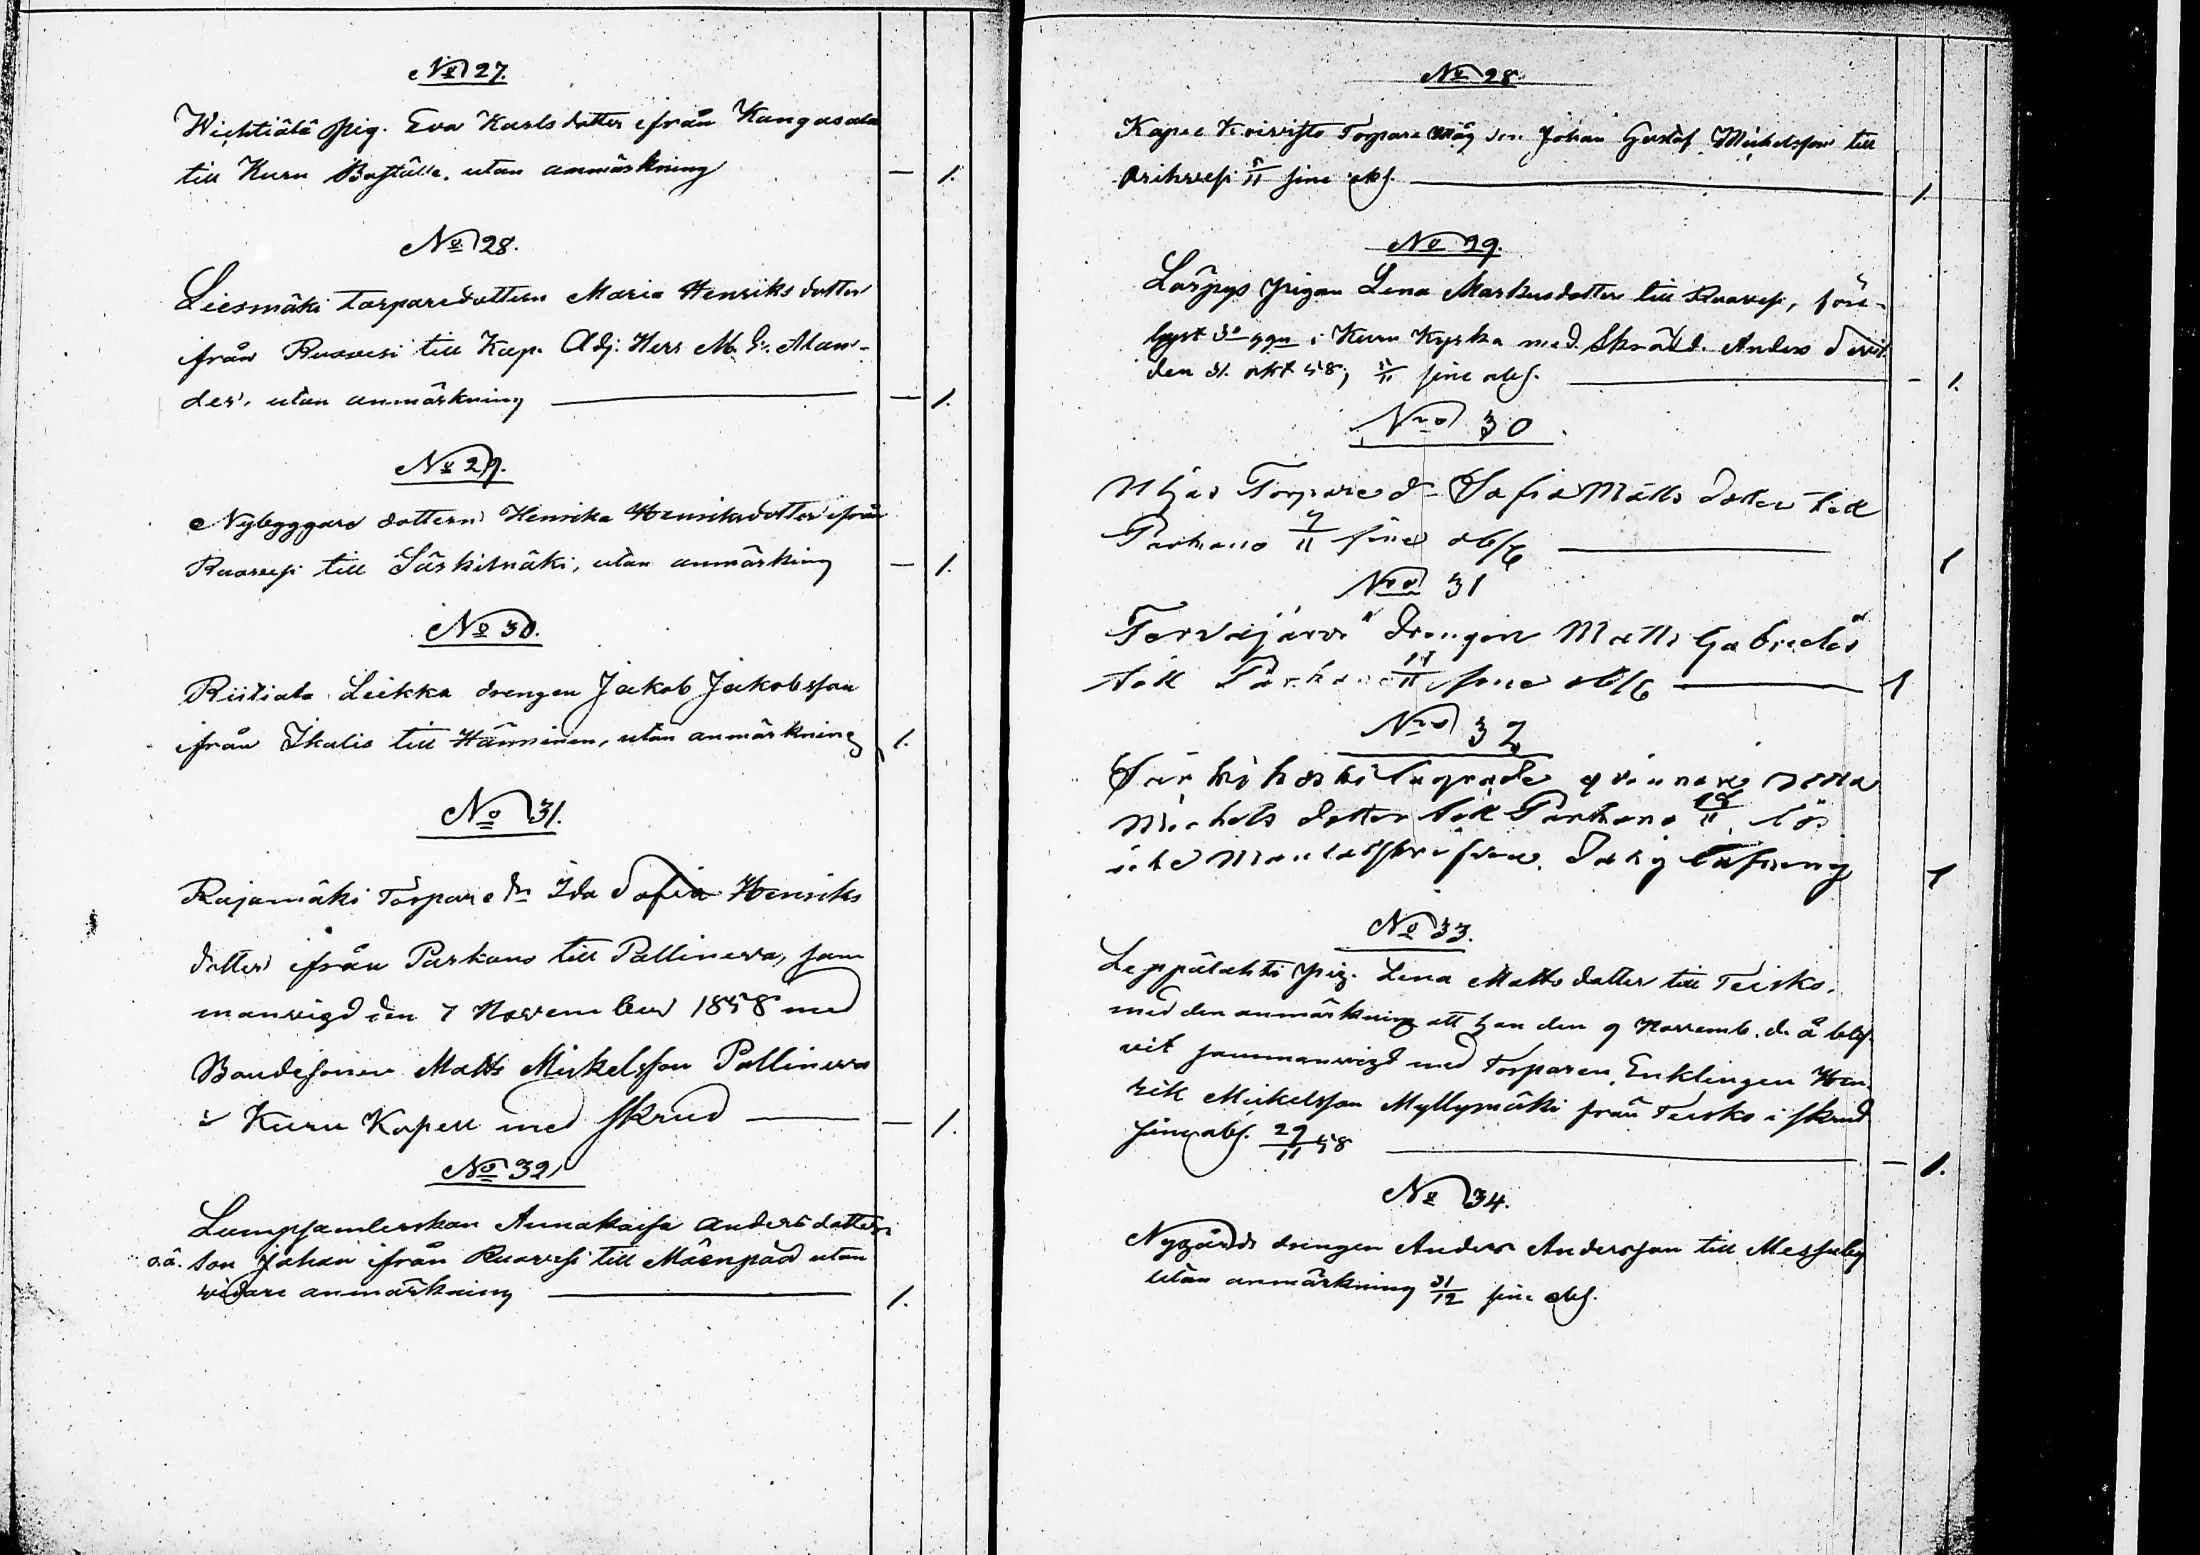 No 27.
Wichtiälä pig. Eva Karlsdotter ifrån Kangasala
till Kuru Boställe, utan anmärkning — 1.
No 28.
Liesmäki torparedottern Maria Henriksdotter
från Ruovesi till Kap. Adj: Herr M. G. Alan-
der, utan anmärkning — 1.
No 29.
Nybyggare dottern Henrika Henriksdotter ifrån
Ruovesi till Särkilmäki, utan anmärkning — 1.
No 30.
Riitiala Liekka drengen Jakob Jakobsson
ifrån Ikalis till Hänninen, utan anmärkning 1.
No 31.
Rajamäki Torpare dr Ida Sofia Henriks
dotter ifrån Parkano till Pallineva, sam
manvigd den 7 November 1858 med
Bondesonen Matts Mickelsson Pallineva
i Kuru Kapell med skrud — 1.
No 32
Lumpsamlerskan Annakaisa Andersdotter
o.ä. son Johan ifrån Ruovesi till Mäenpää utan
vidare anmärkning 1.
No 28.
Kapee Koivisto Torpare måg Johan Gustaf Michelsson till
Orihvesi 5/11 sine abs. 1
No 29.
Lärpys pigan Lena Markusdotter till Ruovesi, före-
lyst 3e ggn i Kuru Kyrka med Skrädd. Anders
den 31. okt 58; 5/11 sine abs. — 1.
Nro 30
Torpare d Sofia Matts dotter till
Parkano 7/11 sine abs 1
Nro 31
Tervajärvi drengen Matts Gabriels
till Parkano 11 sine abs 1
Nro 32
qvinnan
Michels dotter till Parkano 11
1
No 33.
Leppälahti pig. Lena Matts dotter till Teisko,
med den anmärkning att hon den 9 Novemb. d. å blif-
vit sammanvigd med Torparen, Enklingen Hen
rik Mickelsson Myllymäki från Teisko i skrud
sine abs. 29/11 58 — 1.
No 34.
Nygårds drengen Anders Andersson till Messuby
utan anmärkning 31/12 sine abs.